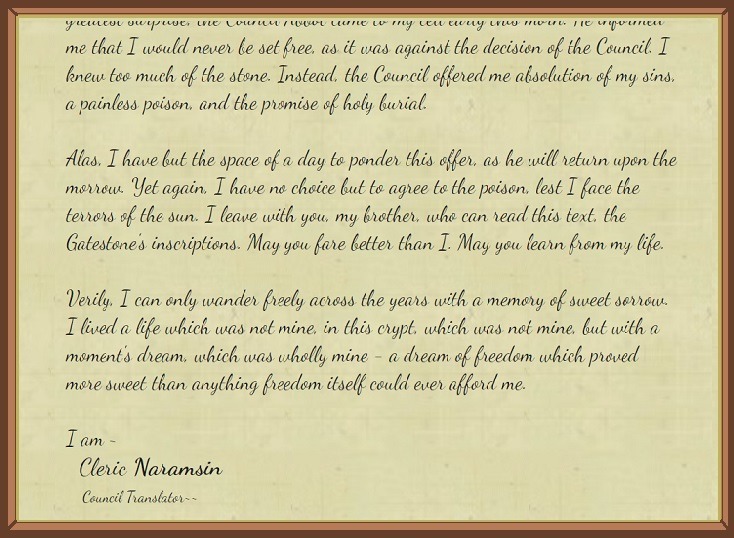 greatest surprise, the Council Abbot came to my cell early this morn. He informed
me that I would never be set free, as it was against the decision of the Council. I
knew too much of the stone. Instead, the Council offered me absolution of my sins,
a painless poison, and the promise of holy burial.
Alas, I have but the space of a day to ponder this offer, as he will return upon the
morrow. Yet again, I have no choice but to agree to the poison, lest I face the
terrors of the sun. I leave with you, my brother, who can read this text, the
Gatestone's inscriptions. May you fare better than I. May you learn from my life.
Verily, I can only wander freely across the years with a memory of sweet sorrow.
I lived a life which was not mine, in this crypt, which was not mine, but with a
moment's dream, which was wholly mine - a dream of freedom which proved
more sweet than anything freedom itself could ever afford me.
I am ~
Cleric Naramsin
Council Translator~~